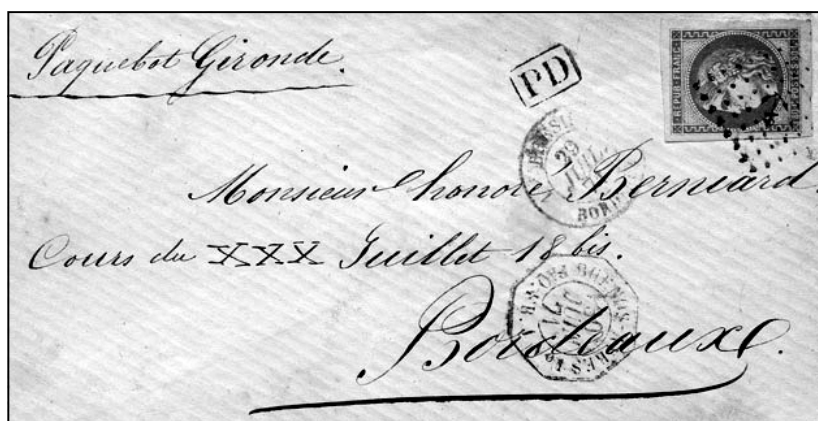 Paquebot Gironde.
PD
REPUB. FRANC.
29
JUIL.
BORD
Monsieur honoré Berniard
Cours du XXX Juillet 18 bis.
BUENOS-
JUIL
71
Bordeaux.